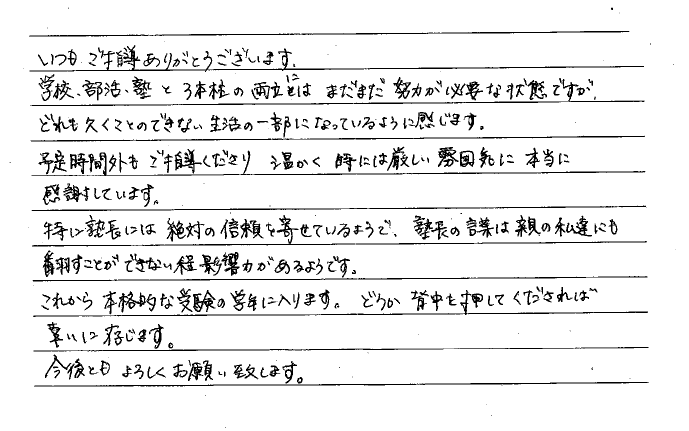 いつも ご指導ありがとうございます。
学校、部活、塾 と 3本柱の 両立にはまだまだ 努力が必要な状態ですが、
どれも欠くことのできない生活の一部になっているように感じます。
予定時間外も ご指導くださり 温かく 時には厳しい 雰囲気に 本当に
感謝しています。
特に塾長には 絶対の信頼を寄せているようで、 塾長の言葉は 親の私達にも
翻すことができない程 影響力があるようです。
これから 本格的な受験の学年に入ります。 どうか 背中を押してくだされば
幸いに存じます。
今後とも よろしく お願い致します。